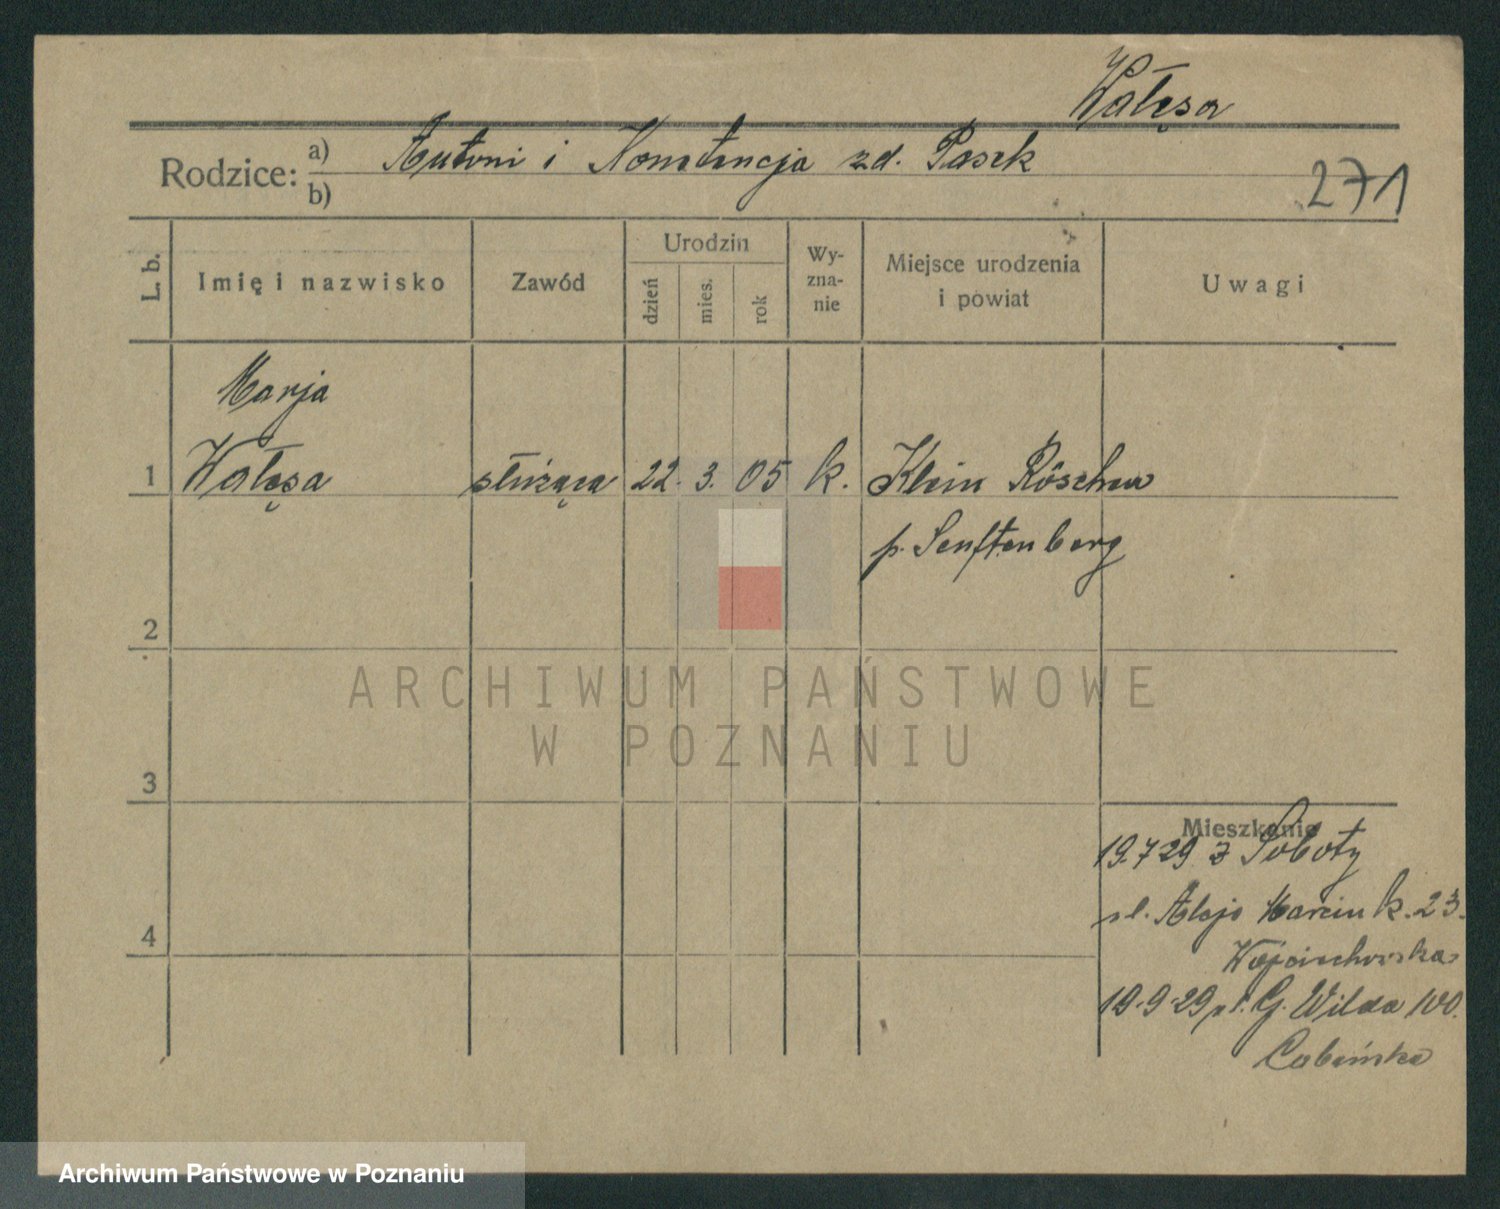 Wałęsa
Rodzice: a) b) Antoni i Konstancja zd. Pasek
271
L. b.
Imię i nazwisko
Zawód
Urodzin
dzień
mies.
rok
Wy-
zna-
nie
Miejsce urodzenia
i powiat
Uwagi
Marja
1 Wałęsa służąca 22. 3. 05 k. Klein Röschen
p. Senftenberg
2
3
4
Mieszkanie
19.7 29 z Soboty
ul. Aleje Marcink. 23.
Wojciechowska
19.9.29 ul. G. Wilda 100.
ARCHIWUM PAŃSTWOWE
W POZNANIU
Archiwum Państwowe w Poznaniu